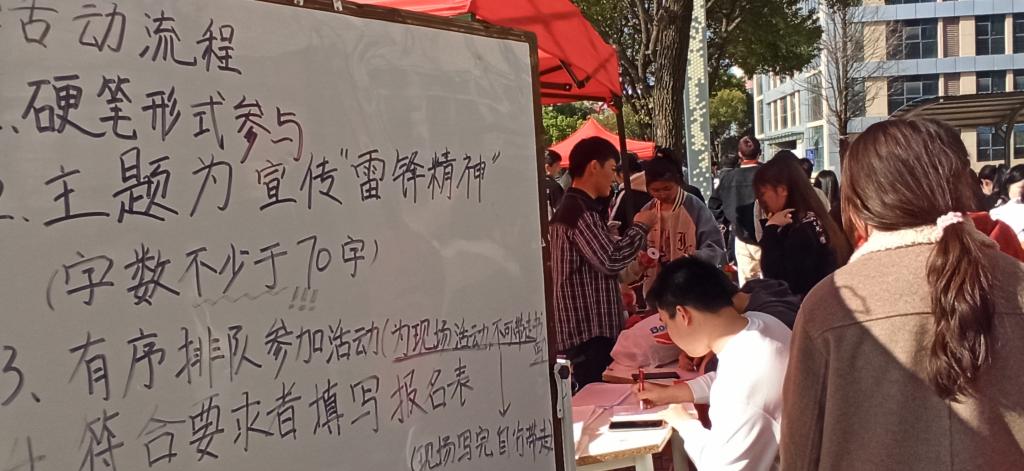 活动流程
1.硬笔形式参与
2.主题为宣传"雷锋精神"
(字数不少于70字)
3、有序排队参加活动(为现场活动,不可带走书
符合要求者填写报名表
(现场写完自行带走